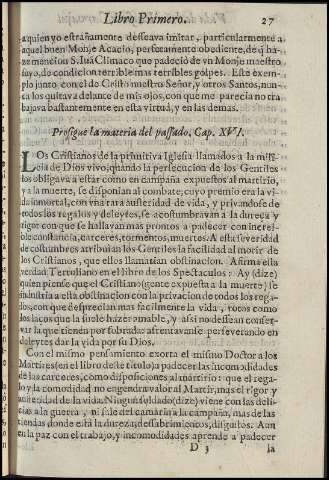 Libro Primero. 27
a quien yo estrañamente desseava imitar, particularmente a
aquel buen Monje Acacio, perfetamente obediente, de q̃ ha-
ze mencion S. Iuã Climaco que padecio de vn Monje maestro
suyo, de condicion terrible mas terribles golpes. Este exem-
plo junto con el de Cristo nuestro Señor, y otros Santos, nun-
ca los quitava delante de mis ojos, con que me parecia no tra
bajava bastantemente en esta virtud, y en las demas.
Prosigue la materia del passado. Cap. XVI.
LOs Cristianos de la primitiva Iglesia llamados a la mili-
cia de Dios vivo, quando la persecucion de los Gentiles
los obligava a estar como en campaña expuestos al martirio,
y a la muerte, se disponian al combate, cuyo premio era la vi-
da inmortal, con vna rara austeridad de vida, y privandose de
todos los regalos y deleytes, se acostumbravan a la dureza y
rigor con que se hallavan mas prontos a padecer con increi-
ble constancia, carceres, tormentos, muertes. A esta severidad
de costumbres atribuian los Gentiles la facilidad al morir de
los Cristianos, que ellos llamatian obstinacion. Afirma esta
verdad Tertuliano en el libro de los Spectaculos: Ay (dize)
quien piense que el Cristiano (gente expuesta a la muerte) se
industria a esta obstinacion con la privacion de todos los rega-
dos, con que desprecian mas facilmente la vida, rotos como
los laços que la suele hazer amable, y assi no dessean conser-
var la que tienen por sobrada: afrentavanse perseverando en
deleytes dar la vida por su Dios.
Con el mismo pensamiento exorta el mismo Doctor a los
Martires (en el libro deste titulo) a padecer las incomodidades
de las carceres, como disposiciones al martirio: que el rega-
lo y la comodidad no engendra valor al Martir, mas el rigor y
austeridad de la vida. Ningun soldado (dize) viene con las deli-
cias a la guerra, ni sale del camara a la campaña, mas de las
tiendas donde està la dureza, dessabrimientos, disgustos. Aun
en la paz con el trabajo, y incomodidades aprende a padecer
D 3 la